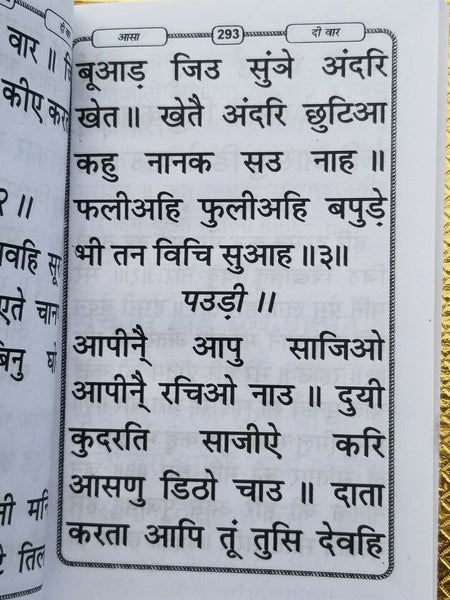 वार ॥
कीए
२ ॥
एते
बिनु
आसा 293 दी वार
बूआड़ जिउ सुंञे अंदरि
खेत॥ खेतै अंदरि छुटिआ
कहु नानक सउ नाह॥
फलीअहि फुलीअहि बपुड़े
भी तन विचि सुआह॥३॥
पउड़ी॥
आपीन्है आपु साजिओ
आपीन्है रचिओ नाउ॥ दुयी
कुदरति साजीऐ करि
आसणु डिठो चाउ॥ दाता
करता आपि तूं तुसि देवहि